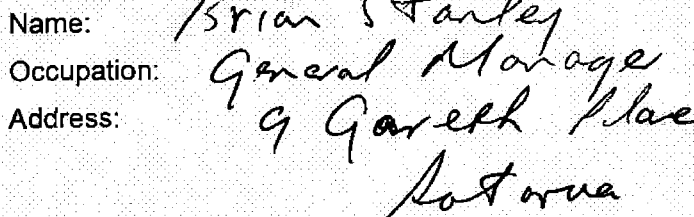 Name: Brian Stanley
Occupation: General Manage
Address: 9 Gareth Place
Rotorua